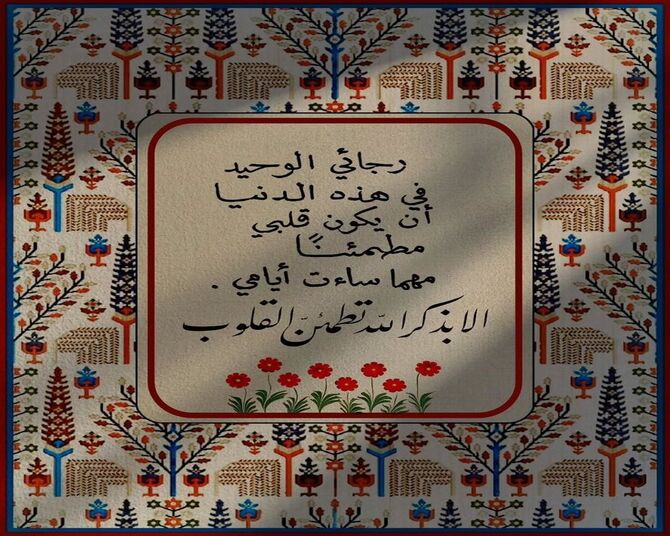 رجائي الوحيد
في هذه الدنيا
أن يكون قلبي
مطمئنًا
مهما ساءت أيامي .
الا بذكر الله تطمئنّ القلوب